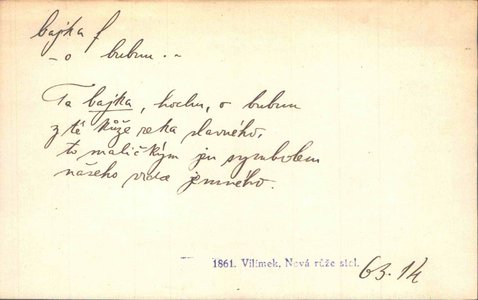 bajka f
- o bubnu ..
Ta bajka, hochu, o bubnu
z té kůže reka slavného,
to maličkým jen symbolem
našeho vrda jemného.
1861. Vilímek. Nová růže stol.
63.14